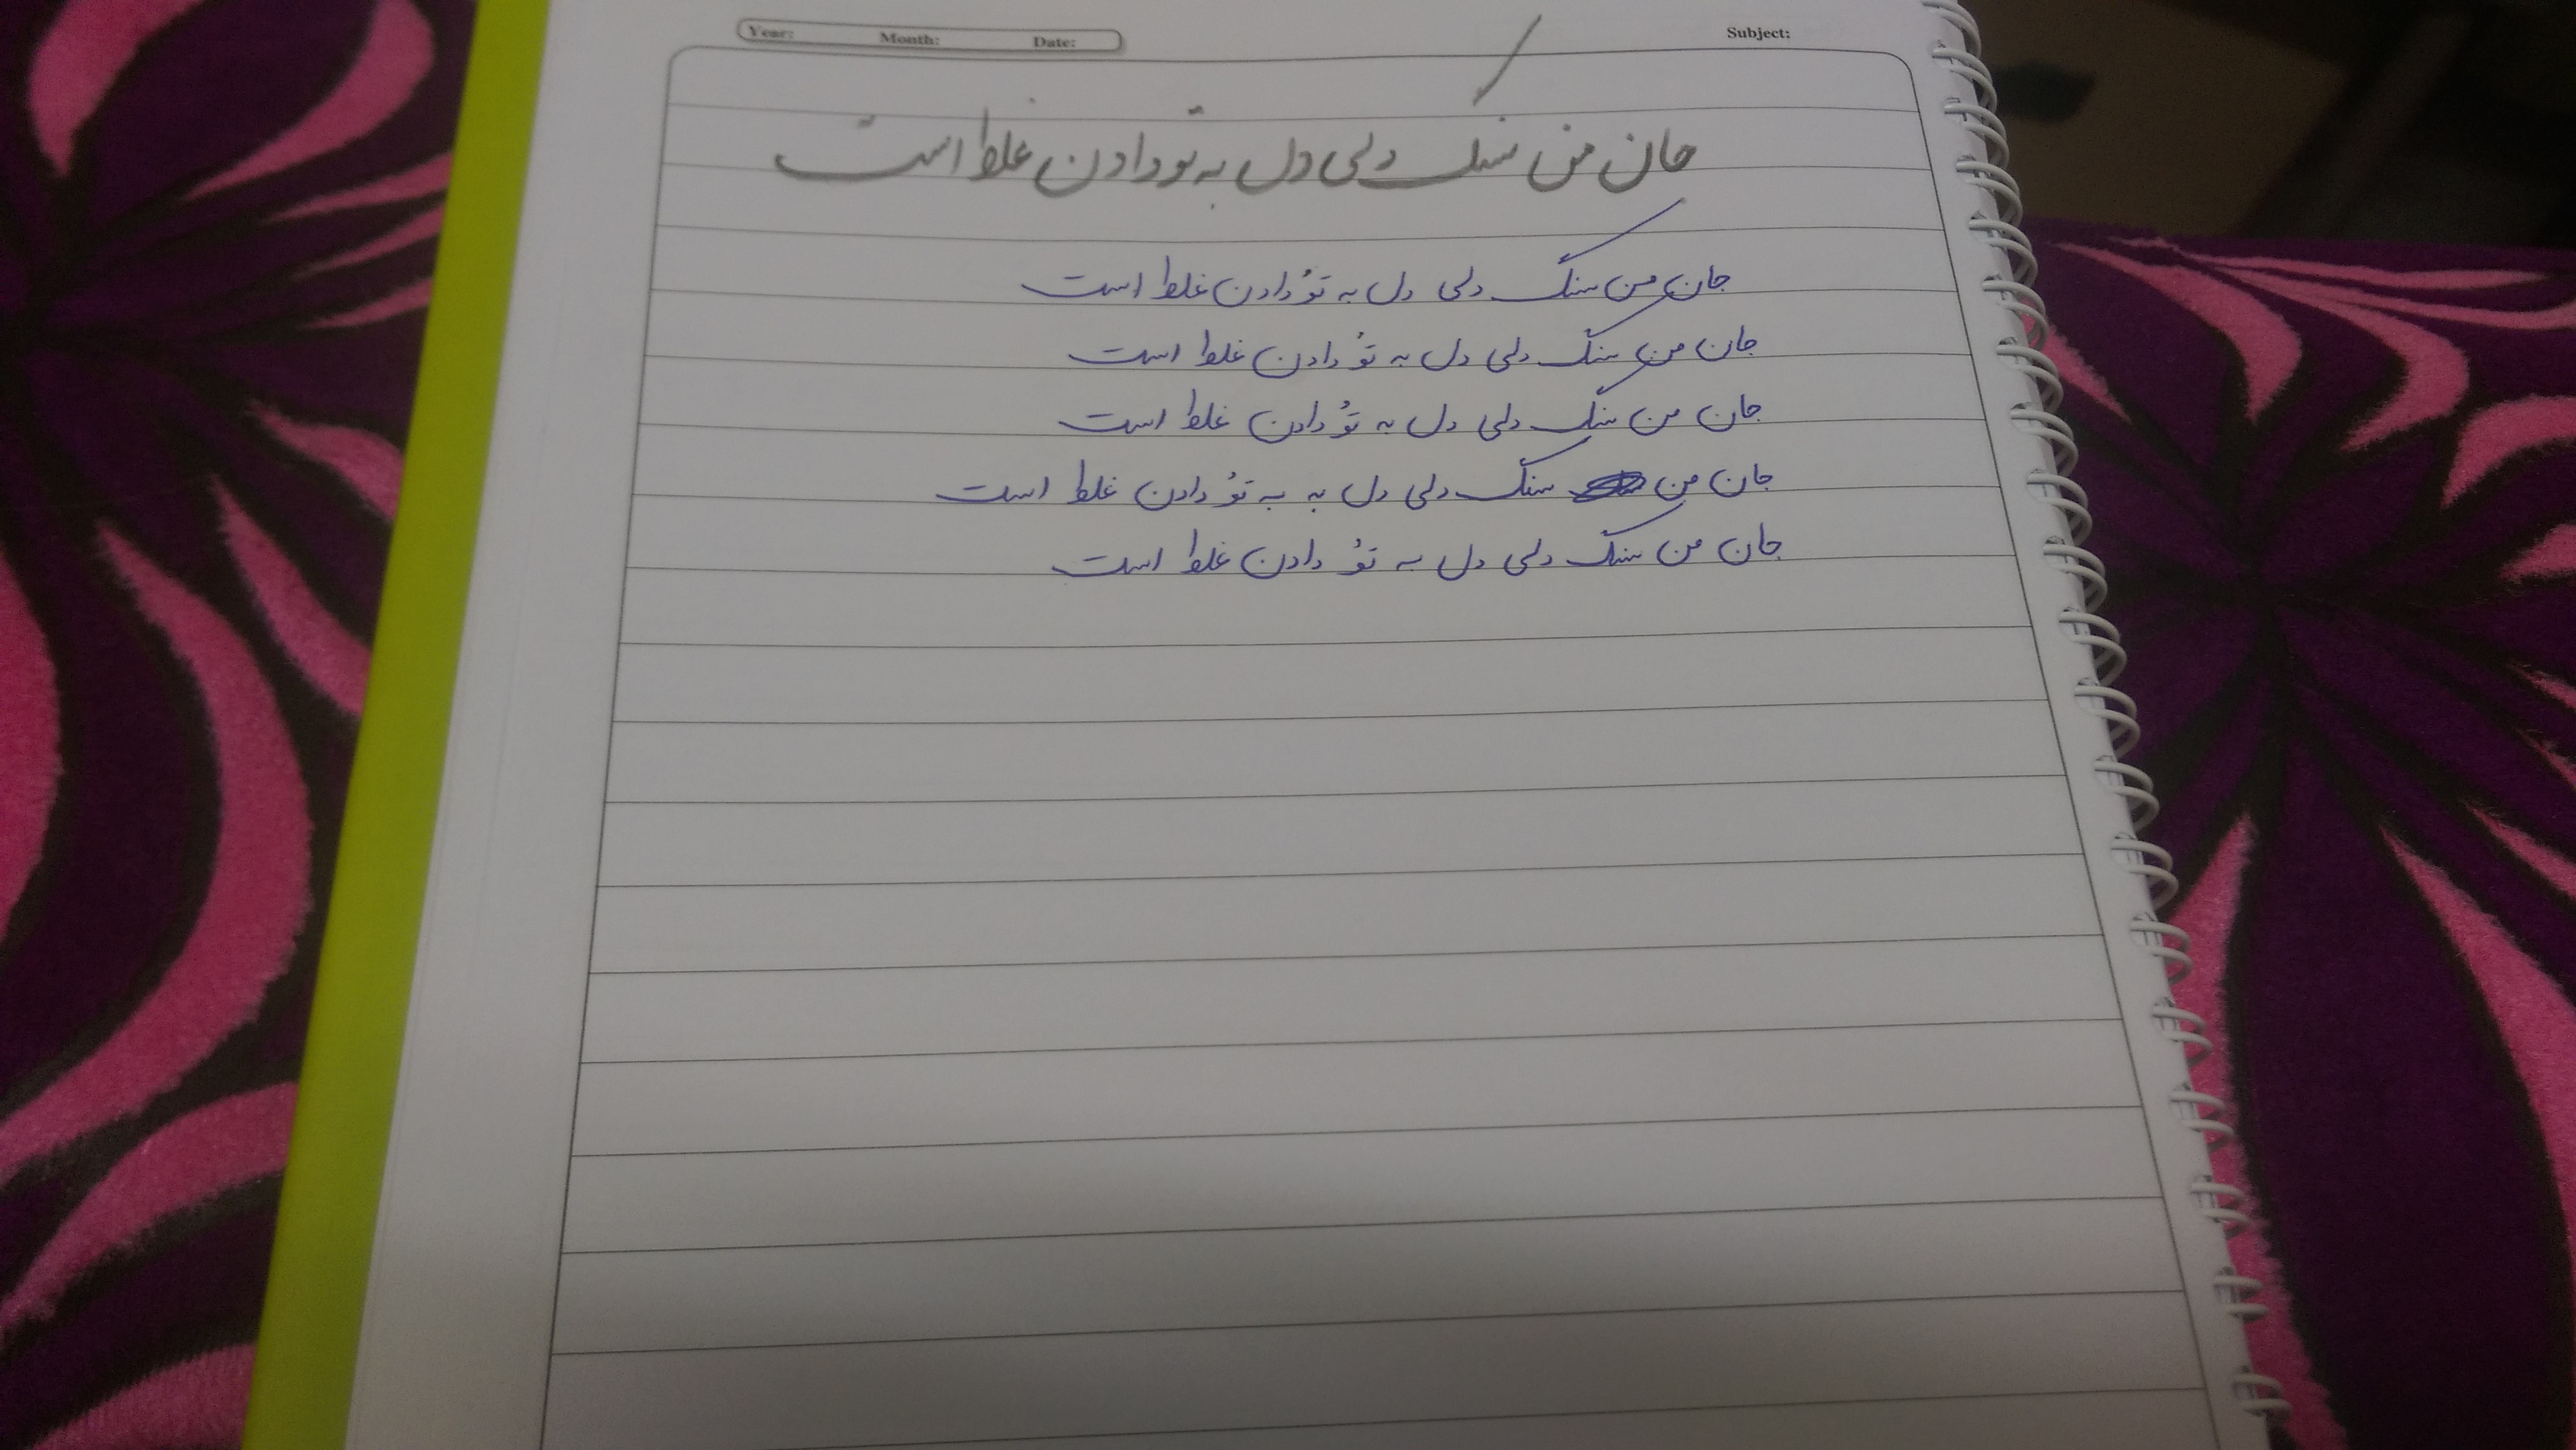 Year: Month: Date: Subject:
جان من سنگ دلی دل به تو دادن غلط است
جان من سنگ دلی دل به تو دادن غلط است
جان من سنگ دلی دل به تو دادن غلط است
جان من سنگ دلی دل به تو دادن غلط است
جان من سنگ دلی دل به به تو دادن غلط است
جان من سنگ دلی دل به تو دادن غلط است